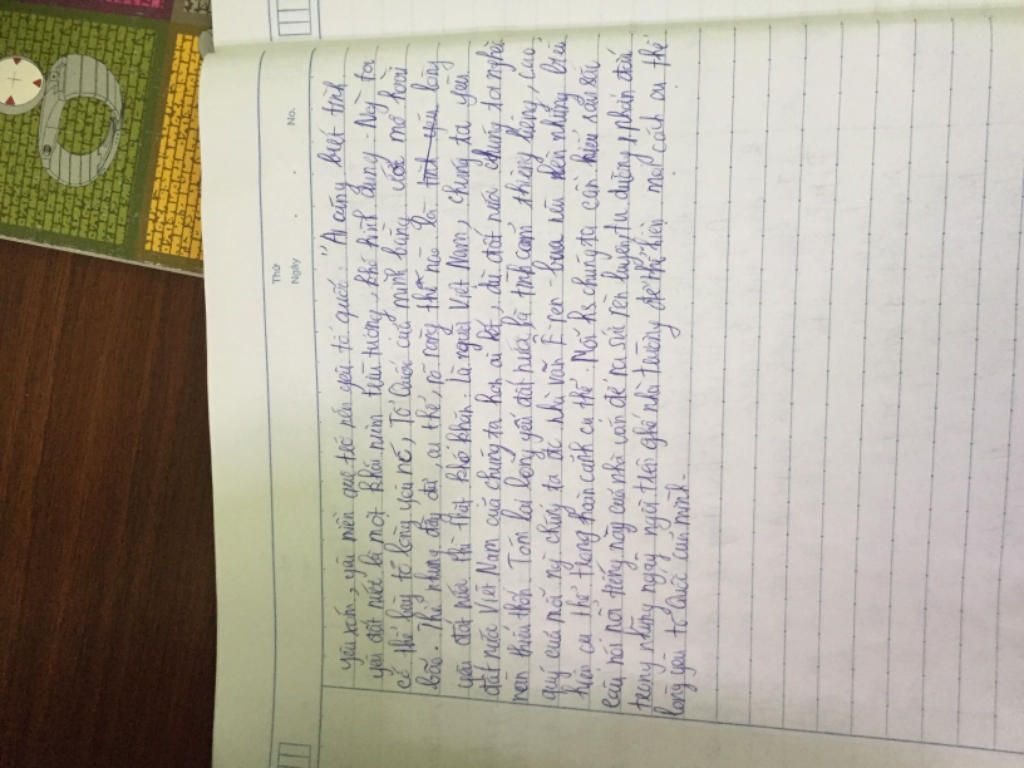 Thứ
Ngày
No.
yêu xóm, yêu miền quê trở nên yêu tổ quốc." Ai cũng biết tình
yêu đất nước là một khái niệm trừu tượng, khó hình dung. Ngày ta
có thể bày tỏ lòng yêu nó, Tổ Quốc của mình bằng vốn mở hoài
bão. Thế nhưng đầy đủ, cụ thể, rõ ràng thế nào là tình yêu lòng
yêu đất nước thì thật khó khăn. Là người Việt Nam, chúng ta yêu
đất nước Việt Nam của chúng ta hơn ai hết, dù đất nước chúng ta nghèo
nàn thiếu thốn. Tóm lại lòng yêu đất nước là tình cảm thiêng liêng, cao
quý của mỗi ng chúng ta đc nhà văn Ê-ren-bua nêu lên những biểu
hiện cụ thể trong hoàn cảnh cụ thể. Mỗi hs chúng ta cần hiểu sâu sắc
câu nói nổi tiếng này của nhà văn để ra sức rèn luyện tu dưỡng, phấn đấu
trong những ngày ngồi trên ghế nhà trường để thể hiện một cách cụ thể
lòng yêu tổ quốc của mình.